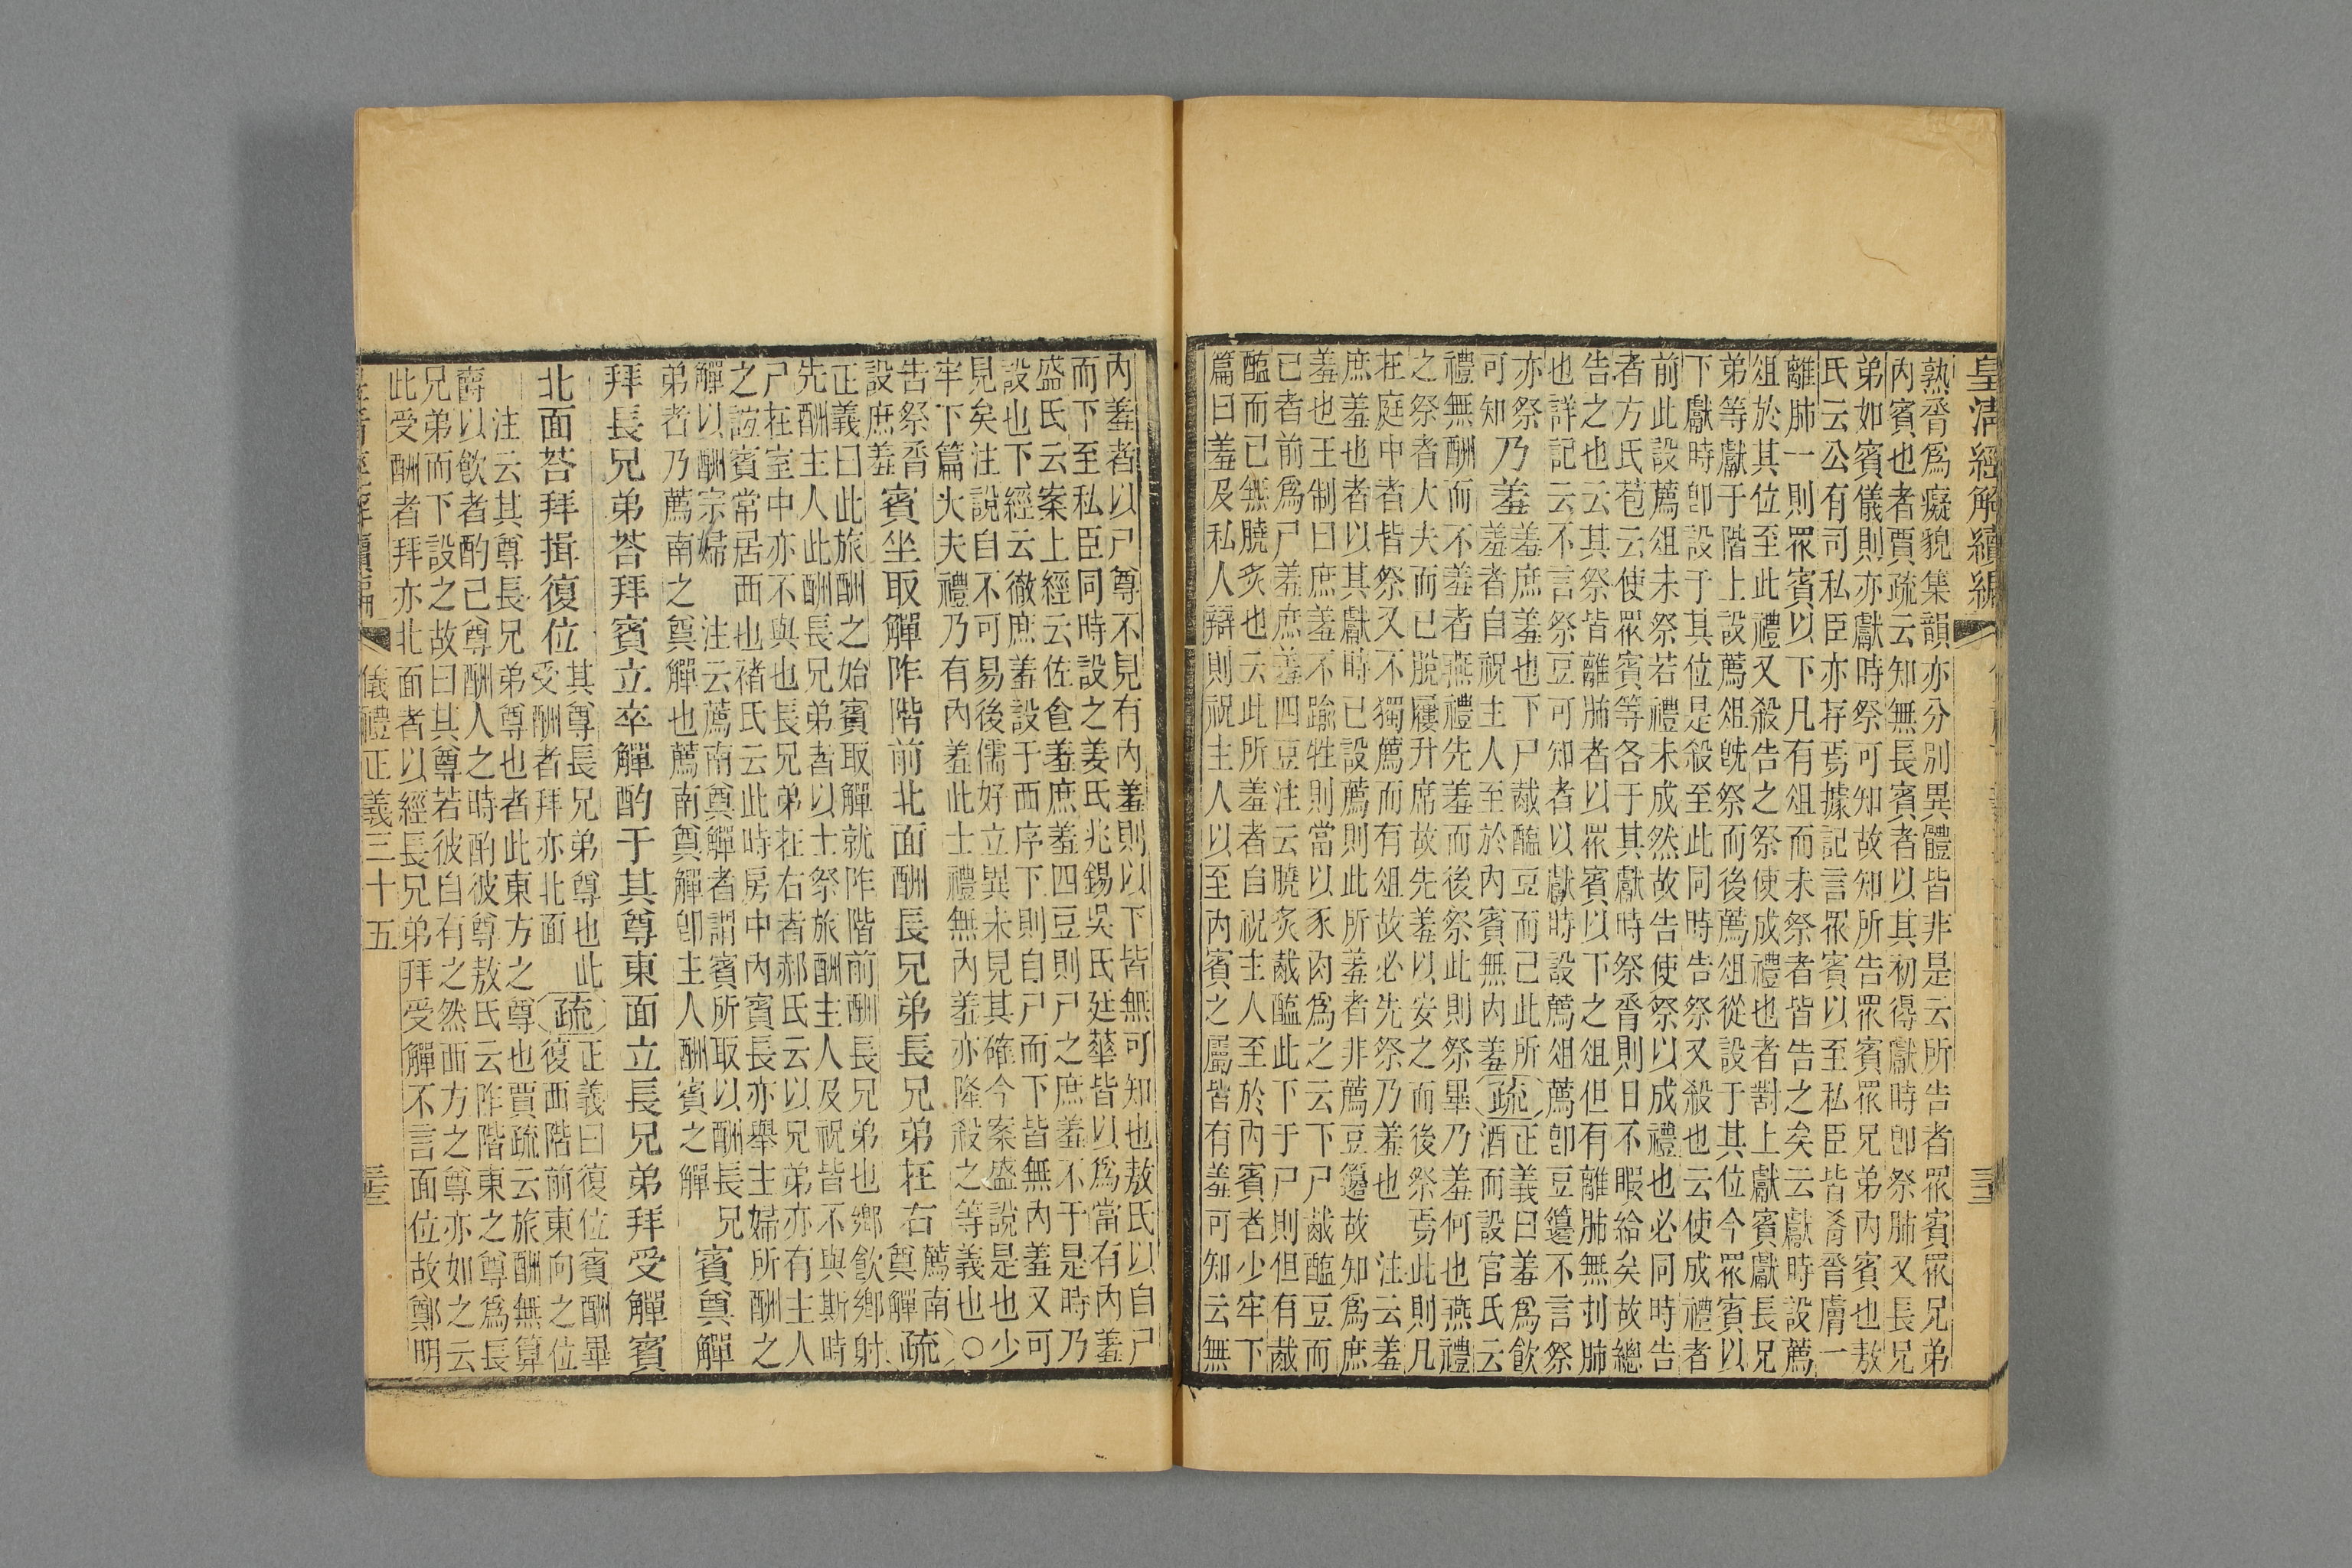 皇清經解續編
三十二
熟脀爲癡貌集韻亦分別異體皆非是云所告者眾賓眾兄弟
內賓也者賈疏云知無長賓者以其初得獻時卽祭肺又長兄
弟如賓儀則亦獻時祭可知故知所告眾賓眾兄弟內賓也敖
氏云公有司私臣亦存焉據記言眾賓以至私臣皆殽脀膚一
離肺一則眾賓以下凡有俎而未祭者皆告之矣云獻時設薦
俎於其位至此禮又殺告之祭使成禮也者劉上獻賓獻長兄
弟等獻于階上設薦俎旣祭而後薦俎從設于其位今眾賓以
下獻時卽設于其位是殺至此同時告祭又殺也云使成禮者
前此設薦俎未祭若禮未成然故告使祭以成禮也必同時告
者方氏苞云使眾賓等各于其獻時祭脀則日不暇給矣故總
告之也云其祭皆離肺者以眾賓以下之俎但有離肺無刌肺
也詳記云不言祭豆可知者以獻時設薦俎薦卽豆籩不言祭
亦祭可知
乃羞
羞庶羞也下尸胾醢豆而已此所羞者自祝主人至於內賓無內羞
疏
正義曰羞爲飮
酒而設官氏云
禮無酬而不羞者燕禮先羞而後祭此則祭畢乃羞何也燕禮
之祭者大夫而已脫屨升席故先羞以安之而後祭焉此則凡
在庭中者皆祭又不獨薦而有俎故必先祭乃羞也　注云羞
庶羞也者以其獻時已設薦則此所羞者非薦豆籩故知爲庶
羞也王制曰庶羞不踰牲則當以豕肉爲之云下尸胾醢豆而
已者前爲尸羞庶羞四豆注云膮炙胾醢此下于尸則但有胾
醢而已無膮炙也云此所羞者自祝主人至於內賓者少牢下
篇曰羞及私人辯則祝主人以至內賓之屬皆有羞可知云無
內羞者以尸尊不見有內羞則以下皆無可知也敖氏以自尸
而下至私臣同時設之姜氏兆錫吳氏廷華皆以爲當有內羞
盛氏云案上經云佐食羞庶羞四豆則尸之庶羞不于是時乃
設也下經云徹庶羞設于西序下則自尸而下皆無內羞又可
見矣注說自不可易後儒好立異未見其確今案盛說是也少
牢下篇大夫禮乃有內羞此士禮無內羞亦隆殺之等義也○
告祭脀
設庶羞
賓坐取觶阼階前北面酬長兄弟長兄弟在右
薦南
奠觶
疏
正義曰此旅酬之始賓取觶就阼階前酬長兄弟也鄉飮鄉射
先酬主人此酬長兄弟者以士祭旅酬主人及祝皆不與斯時
尸在室中亦不與也長兄弟在右者郝氏云以兄弟亦有主人
之誼賓常居西也褚氏云此時房中內賓長亦舉主婦所酬之
觶以酬宗婦　注云薦南奠觶者謂賓所取以酬長兄
弟者乃薦南之奠觶也薦南奠觶卽主人酬賓之觶
賓奠觶
拜長兄弟荅拜賓立卒觶酌于其尊東面立長兄弟拜受觶賓
北面荅拜揖復位
其尊長兄弟尊也此
受酬者拜亦北面
疏
正義曰復位賓酬畢
復西階前東向之位
注云其尊長兄弟尊也者此東方之尊也賈疏云旅酬無算
爵以飮者酌己尊酬人之時酌彼尊敖氏云阼階東之尊爲長
兄弟而下設之故曰其尊若彼自有之然西方之尊亦如之云
此受酬者拜亦北面者以經長兄弟拜受觶不言面位故鄭明
儀禮正義三十五